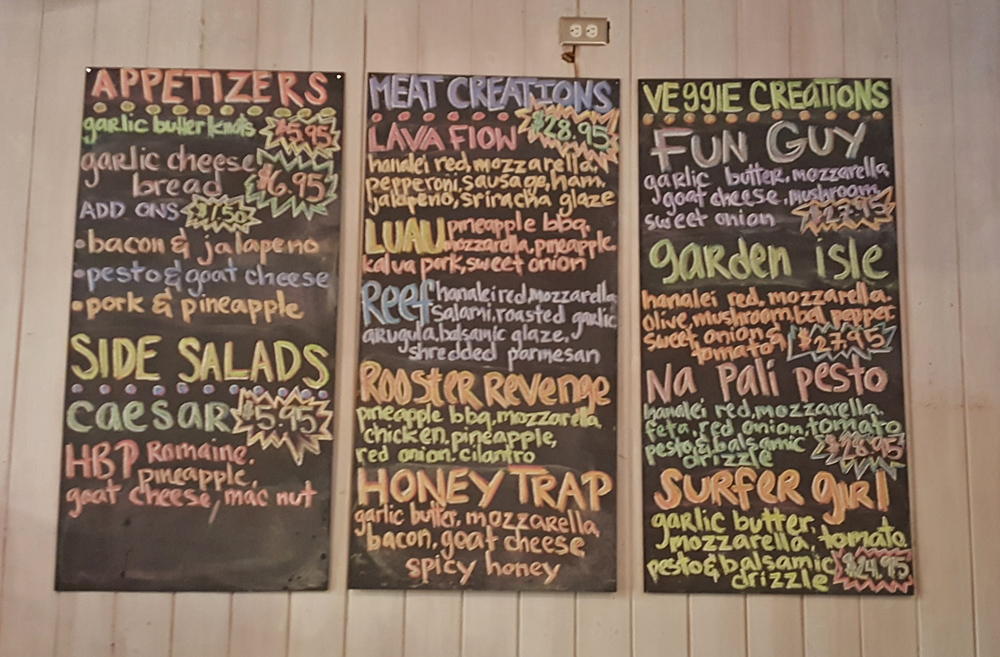 APPETIZERS
garlic butter knots $5.95
garlic cheese
bread $6.95
ADD ONS $1.50
• bacon & jalapeno
• pesto & goat cheese
• pork & pineapple
SIDE SALADS
caesar $5.95
HBP Romaine,
pineapple,
goat cheese, mac nut
MEAT CREATIONS
LAVA FLOW $28.95
hanalei red, mozzarella,
pepperoni, sausage, ham,
jalapeno, sriracha glaze
LUAU pineapple bbq,
mozzarella, pineapple,
kalua pork, sweet onion
Reef hanalei red, mozzarella,
Salami, roasted garlic,
arugula, balsamic glaze,
shredded parmesan
ROOSTER REVENGE
pineapple bbq, mozzarella,
chicken, pineapple,
red onion, cilantro
HONEY TRAP
garlic butter, mozzarella,
bacon, goat cheese
spicy honey
VEGGIE CREATIONS
FUN GUY
garlic butter, mozzarella,
goat cheese, mushroom,
sweet onion $27.95
garden isle
hanalei red, mozzarella,
Olive, mushroom, bel pepper
sweet onion &
tomato $27.95
Na Pali pesto
hanalei red, mozzarella,
feta, red onion, tomato
pesto & balsamic $28.95
drizzle
SURFER girl
garlic butter,
mozzarella, tomato
pesto & balsamic $24.95
drizzle